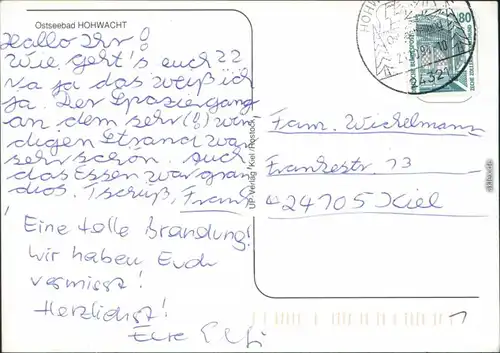 Ostseebad HOHWACHT
Hallo Ihr!
Wie geht's euch??
Na ja das weiß ich
ja. Der Spaziergang
an dem sehr(!) win
digen Strand war
sehr schön. Auch
das Essen war gran
dios. Tschüß, Frank
Eine tolle Brandung!
Wir haben Euch
vermisst!
Herzlichst!
Eure
UP Verlag Kiel/Rostock
80
2432
Fam. Wichelmann
Frankestr. 13
24105 Kiel